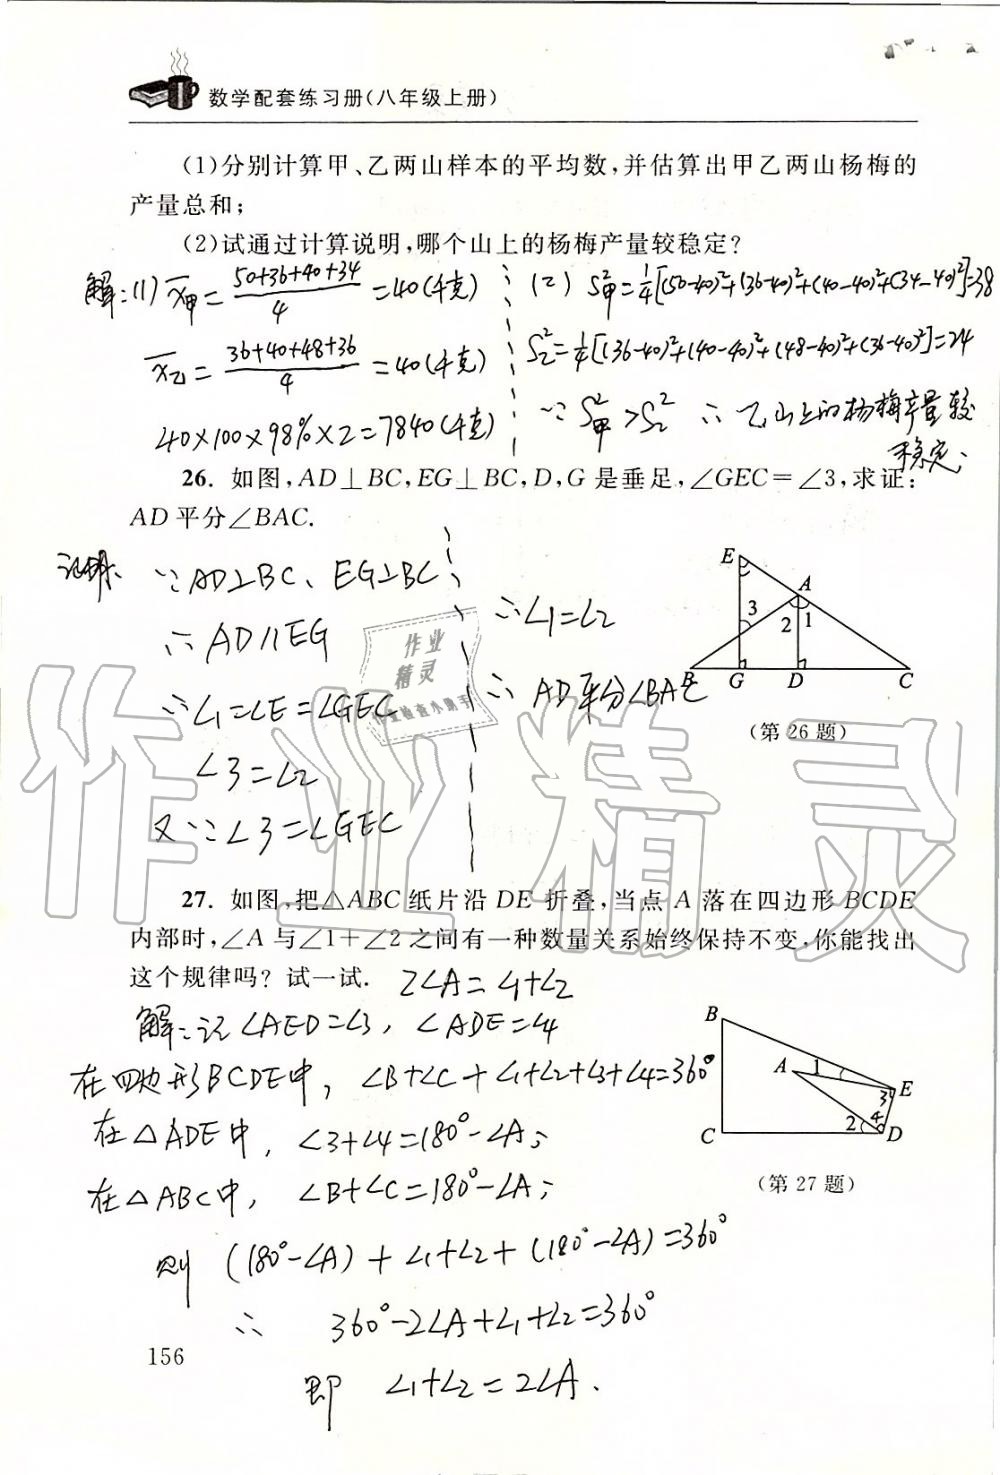 数学配套练习册(八年级上册)
(1)分别计算甲、乙两山样本的平均数,并估算出甲乙两山杨梅的
产量总和;
(2)试通过计算说明,哪个山上的杨梅产量较稳定?
解:(1) x甲=(50+36+40+34)/4=40(千克)
x乙=(36+40+48+36)/4=40(千克)
40×100×98%×2=7840(千克)
(2) S²甲=1/4[(50-40)²+(36-40)²+(40-40)²+(34-40)²]=38
S²乙=1/4[(36-40)²+(40-40)²+(48-40)²+(36-40)²]=24
∵S²甲>S²乙 ∴乙山上的杨梅产量较
稳定.
26. 如图,AD⊥BC,EG⊥BC,D,G是垂足,∠GEC=∠3,求证:
AD平分∠BAC.
证明: ∵AD⊥BC、EG⊥BC
∴AD∥EG
∴∠1=∠E=∠GEC
∠3=∠2
又∵∠3=∠GEC
∴∠1=∠2
∴AD平分∠BAC
E
A
3
2
1
B
G
D
C
(第26题)
作业
精灵
作业检查小助手
作业精灵
27. 如图,把△ABC纸片沿DE折叠,当点A落在四边形BCDE
内部时,∠A与∠1+∠2之间有一种数量关系始终保持不变,你能找出
这个规律吗?试一试. 2∠A=∠1+∠2
解:记∠AED=∠3, ∠ADE=∠4
在四边形BCDE中, ∠B+∠C+∠1+∠2+∠3+∠4=360°
在△ADE中, ∠3+∠4=180°-∠A;
在△ABC中, ∠B+∠C=180°-∠A;
则 (180°-∠A)+∠1+∠2+(180°-∠A)=360°
∴ 360°-2∠A+∠1+∠2=360°
即 ∠1+∠2=2∠A.
B
A
1
E
3
4
2
C
D
(第27题)
156